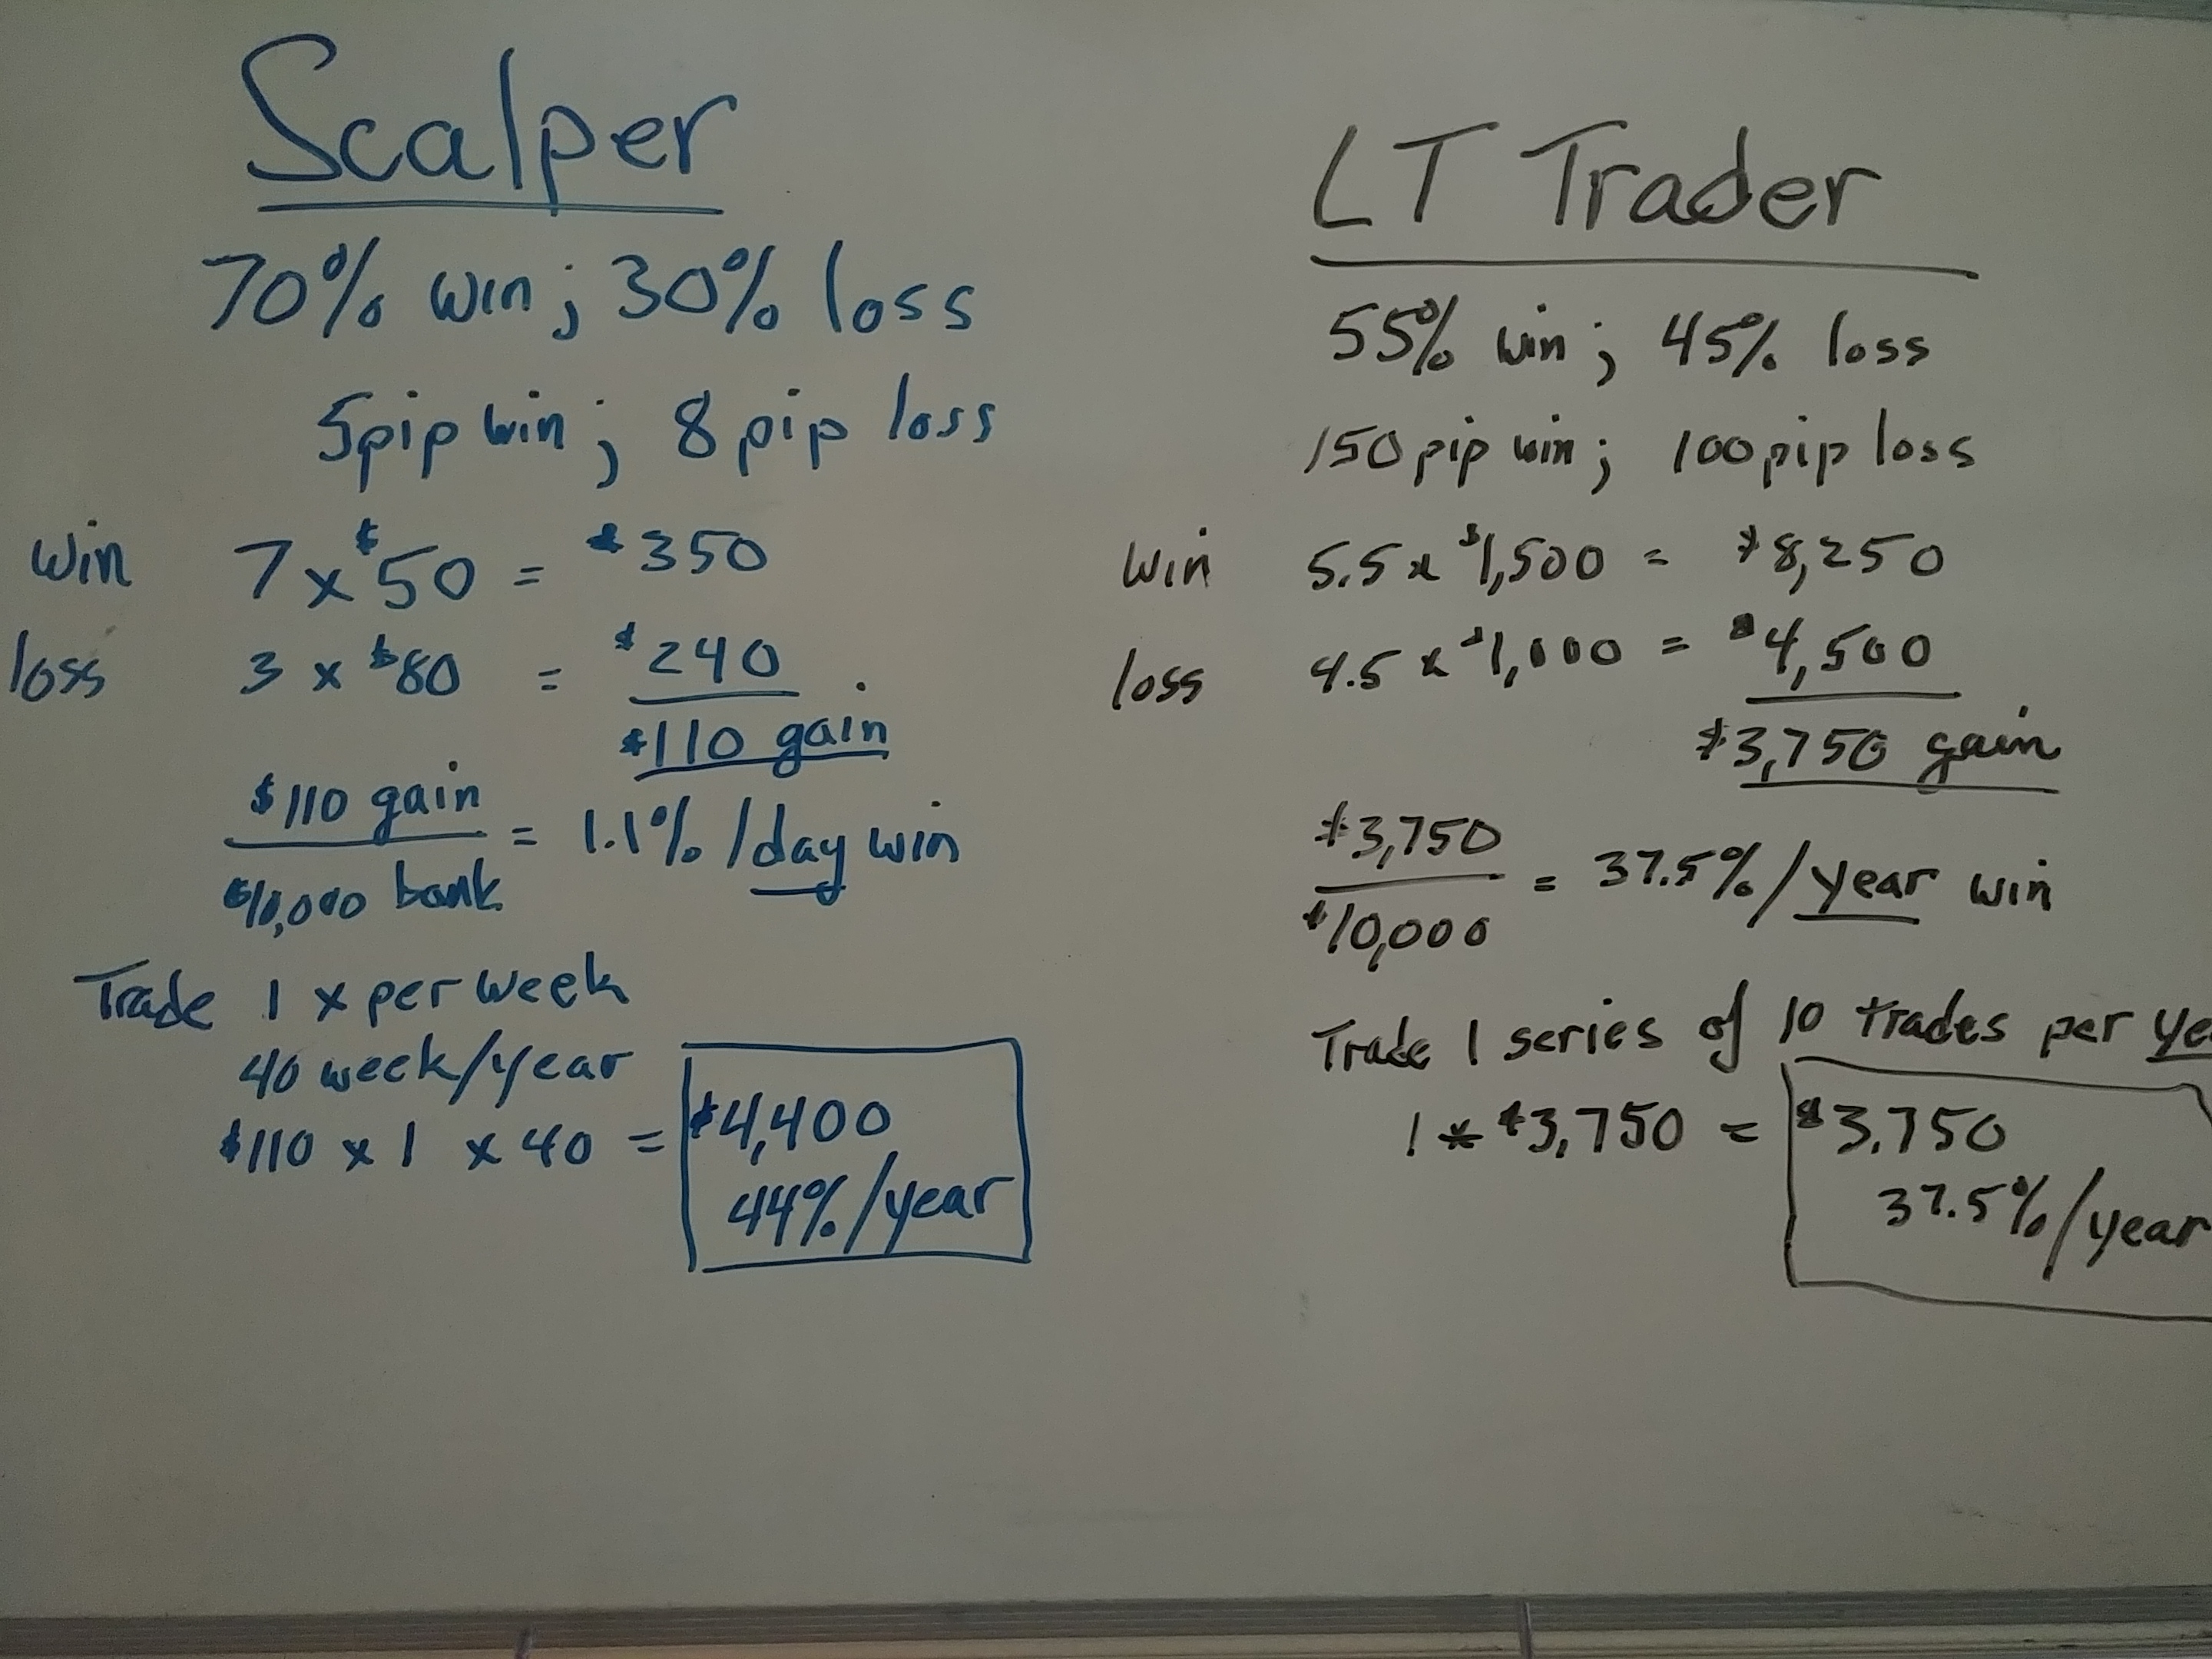 Scalper
70% win; 30% loss
5pip win; 8 pip loss
win 7 x $50 = $350
loss 3 x $80 = $240
$110 gain
$110 gain
$10,000 bank
= 1.1% /day win
Trade 1 x per week
40 week/year
$110 x 1 x 40 = $4,400
44%/year
LT Trader
55% win; 45% loss
150pip win; 100pip loss
win 5.5 x $1,500 = $8,250
loss 4.5 x $1,000 = $4,500
$3,750 gain
$3,750
$10,000
= 37.5%/year win
Trade 1 series of 10 trades per ye
1 * $3,750 = $3,750
37.5%/year